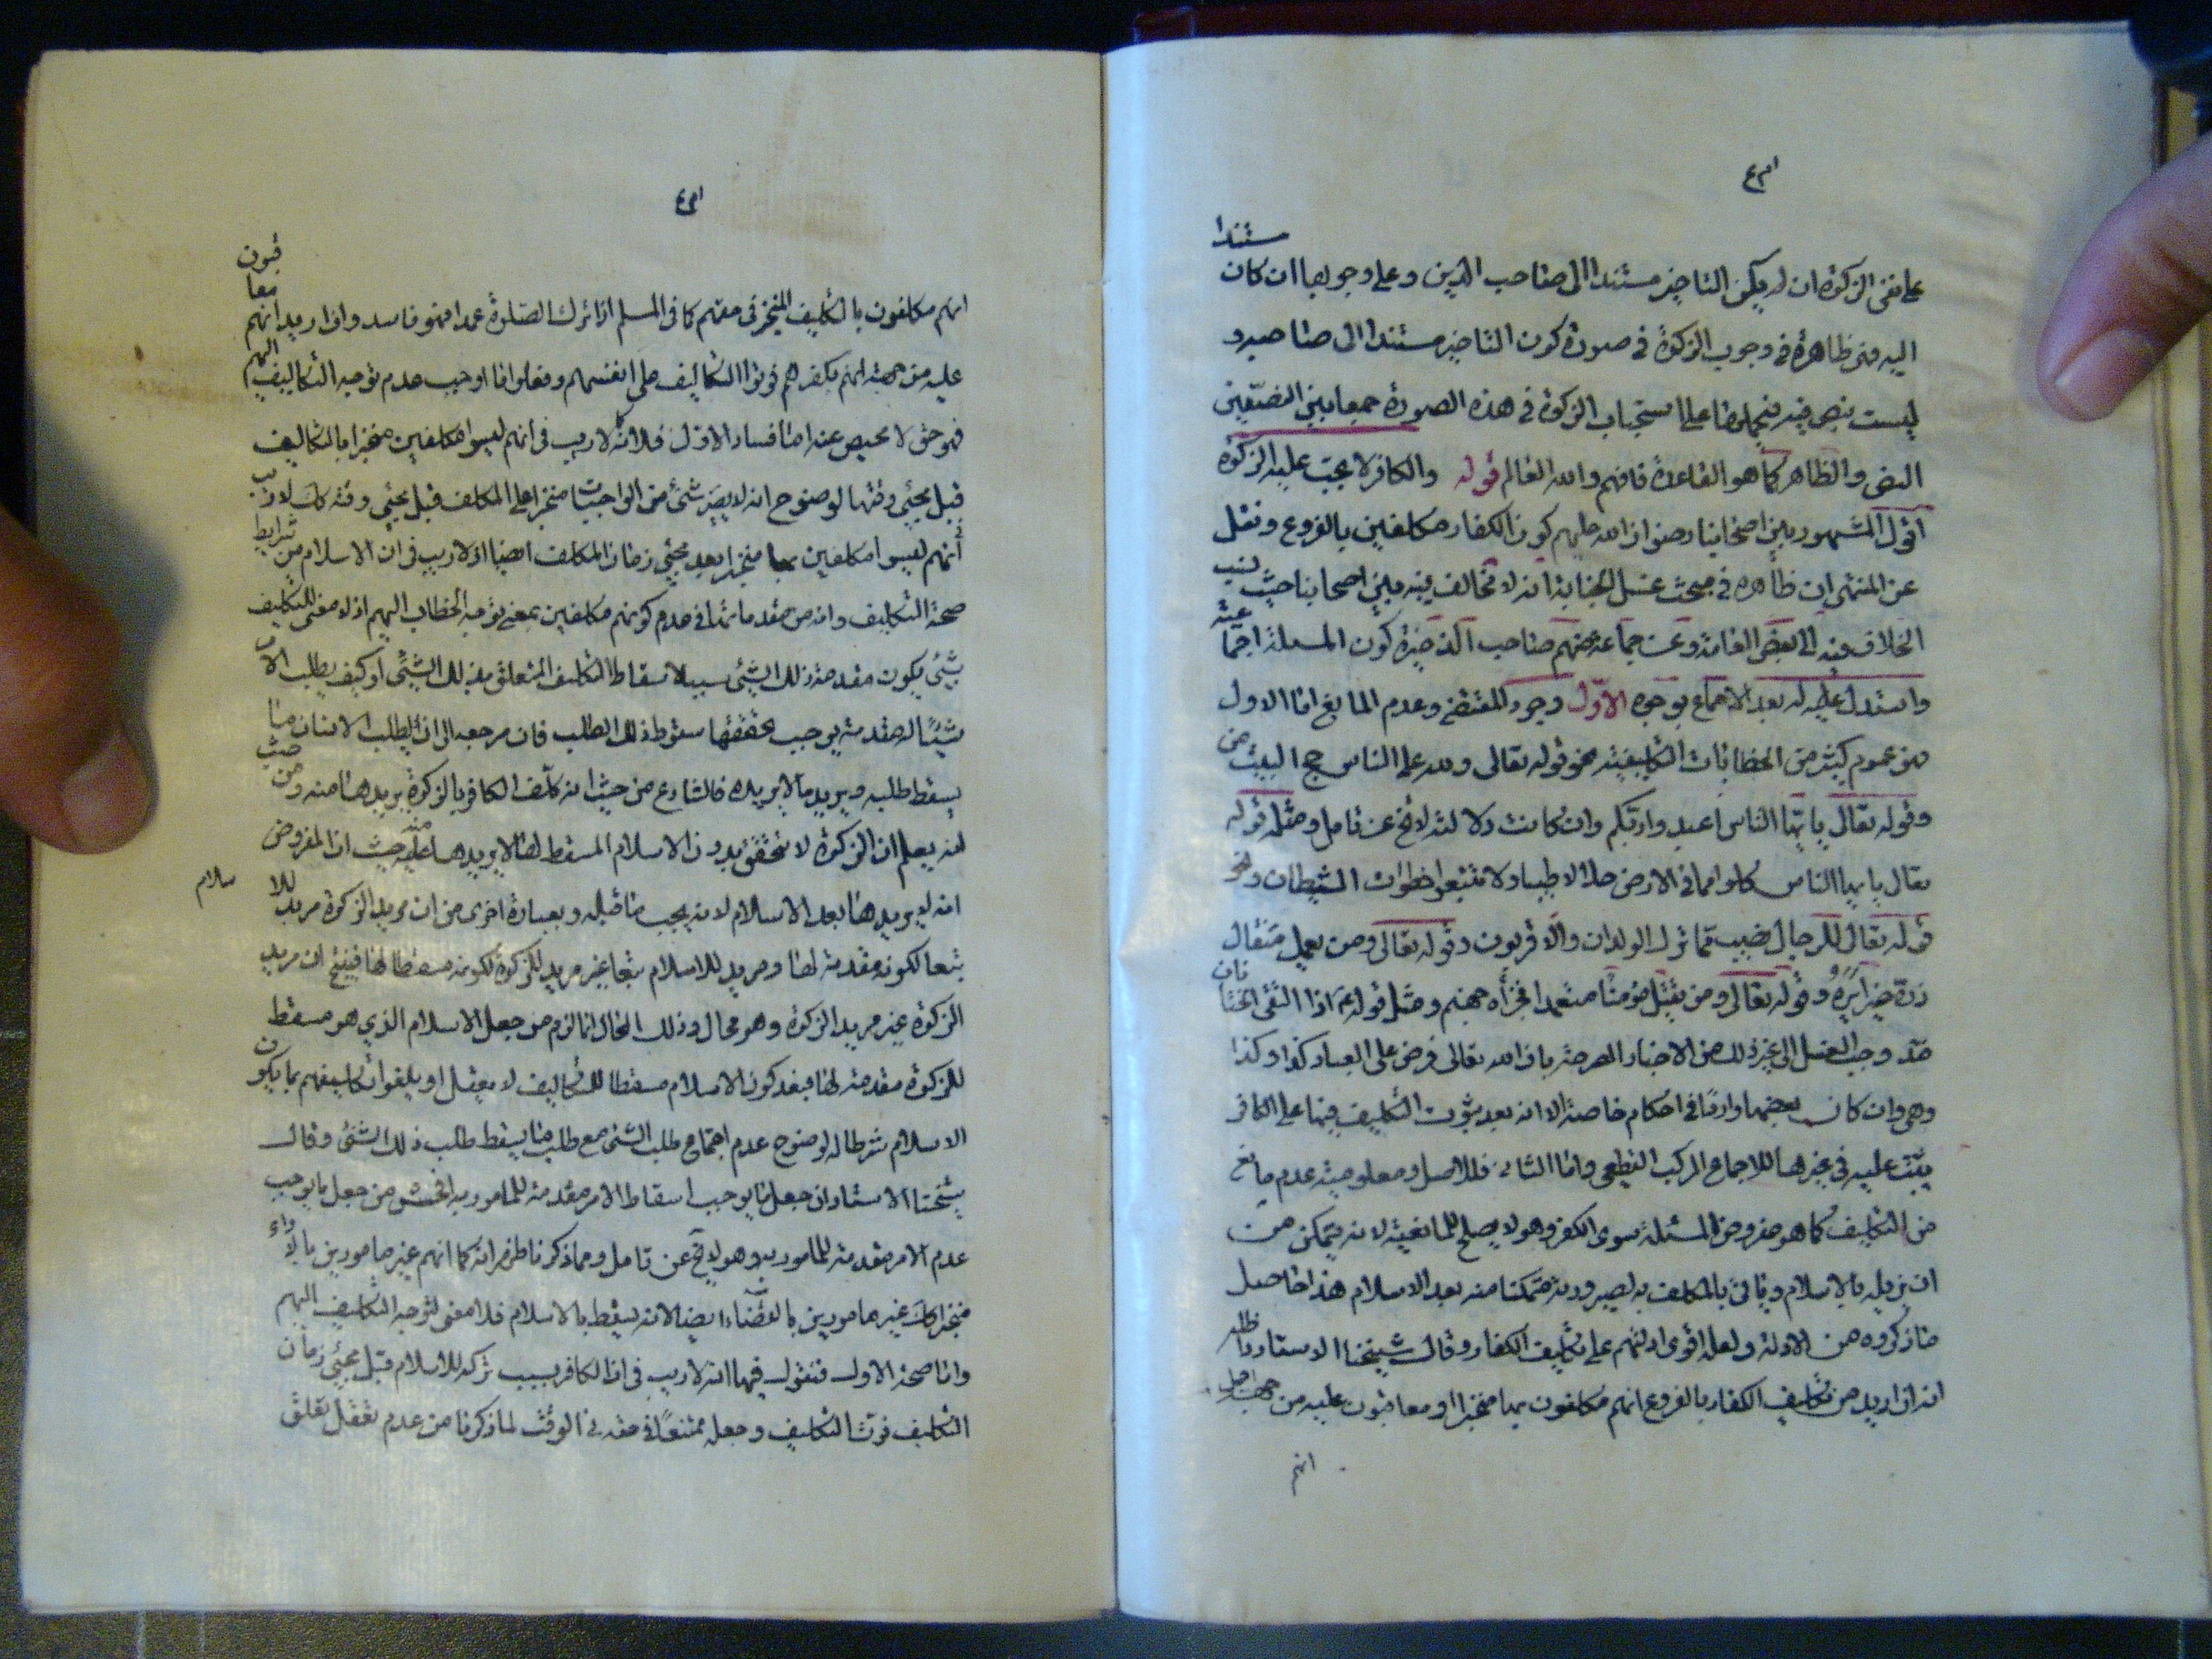 على نفى الزكوة ان لم يكن التاخير مستندا الى صاحب الدين وعلى وجوبها ان كان مستندا
اليه فهى ظاهرة فى وجوب الزكوة فى صورة كون التاخير مستندا الى صاحبه و
ليست بنص فيه فيحملونها على استحباب الزكوة فى هذه الصورة جمعا بين النصين
النص والظاهر كما هو القاعدة فافهم والله العالم قوله والكافر لا يجب عليه الزكوة
اقول المشهور بين اصحابنا رضوان الله عليهم كون الكفار مكلفين بالفروع ونقل
عن المنتهى ان ظاهره فى مبحث غسل الجنابة انه لا مخالف فيه بين اصحابنا حيث نسب
الخلاف فيه الى بعض العامة وعن جماعة منهم صاحب الذخيرة كون المسئلة اجماعية
واستدل عليه بعد الاجماع بوجوه الاول وجود المقتضى وعدم المانع اما الاول
فهو عموم كثير من الخطابات التكليفية نحو قوله تعالى ولله على الناس حج البيت من
وقوله تعالى يا ايها الناس اعبدوا ربكم وان كانت دلالته لا تخ عن تامل ومثله قوله
تعالى يا ايها الناس كلوا مما فى الارض حلالا طيبا ولا تتبعوا خطوات الشيطان ونحو
قوله تعالى للرجال نصيب مما ترك الوالدان والاقربون وقوله تعالى ومن يعمل مثقال
ذرة خيرا يره وقوله تعالى ومن يقتل مؤمنا متعمدا فجزاؤه جهنم ومثل قوله ع اذا التقى الختانان
فقد وجب الغسل الى غير ذلك من الاخبار المصرحة بان الله تعالى فرض على العباد كذا وكذا
وهى وان كان بعضها واردا فى احكام خاصة الا انه بعد ثبوت التكليف فيها على الكافر
يثبت عليه فى غيرها للاجماع المركب القطعى واما الثانى فللاصل ومعلومية عدم مانع
من التكليف كما هو مفروض المسئلة سوى الكفر وهو لا يصلح للمانعية لانه يتمكن من
ان يزيله بالاسلام وياتى بالمكلف به لصيرورته متمكنا منه بعد الاسلام هذا حاصل
ما ذكروه من الادلة ولعله اقوى ادلتهم على تكليف الكفار وقال شيخنا الاستاد دام ظله
انه ان اريد من تكليف الكفار بالفروع انهم مكلفون بها منجزا او معاقبون عليه من جهة
انهم
انهم مكلفون بالتكليف المنجز فى حقهم كما فى المسلم اذا ترك الصلوة عمدا فهو فاسد وان اريد انهم معاقبون
عليه من جهة انهم بكفرهم فوتوا التكاليف على انفسهم وفعلوا ما اوجب عدم توجه التكاليف اليهم
فهو حق لا محيص عنه اما فساد الاول فلانه لا ريب فى انهم ليسوا مكلفين منجزا بالتكاليف
قبل مجيئ وقتها لوضوح انه لا يصير شئ من الواجبات منجزا على المكلف قبل مجيئ وقته كك لا ريب
فى انهم ليسوا مكلفين بها منجزا بعد مجيئ زمان المكلف ايضا اذ لا ريب فى ان الاسلام من شرايط
صحة التكليف وانه من مقدماتها فى عدم كونهم مكلفين بمعنى توجه الخطاب اليهم اذ لا معنى للتكليف
بشئ يكون مقدمة ذلك الشئ سببا لاسقاط التكليف المتعلق بذلك الشئ او كيف يطلب الامر
شيئا له مقدمة يوجب تحققها سقوط ذلك الطلب فان مرجعه الى ان يطلب الانسان ما
يسقط طلبه ويريد ما لا يريده فالشارع من حيث انه كلف الكافر بالزكوة يريدها منه ومن حيث
انه يعلم ان الزكوة لا تتحقق بدون الاسلام المسقط لها لا يريدها منه حيث ان المفروض
انه لا يريدها بعد الاسلام لانه يجب ما قبله وبعبارة اخرى من ان مريد الزكوة مريد للاسلام
تبعا لكونه مقدمة لها ومريد للاسلام تبعا غير مريد للزكوة لكونه مسقطا لها فينتج ان مريد
الزكوة غير مريد الزكوة وهو محال وذلك المحال انما لزم من جعل الاسلام الذي هو مسقط
للزكوة مقدمة لها فبعد كون الاسلام مسقطا للتكاليف لا يعقل او يلغوا تكليفهم بما يكون
الاسلام شرطا له لوضوح عدم اجتماع طلب الشئ مع طلب ما يسقط طلب ذلك الشئ وقال
شيخنا الاستاد ان جعل ما يوجب اسقاط الامر مقدمة للمامور به افحش من جعل ما يوجب
عدم الامر مقدمة للمامور به وهو لا يخ عن تامل ومما ذكرنا ظهر انه كما انهم غير مامورين بالاداء
منجزا كك غير مامورين بالقضاء ايضا لانه يسقط بالاسلام فلا معنى لتوجه التكليف اليهم
واما صحة الاول فنقول فيها انه لا ريب فى ان الكافر بسبب تركه للاسلام قبل مجيئ زمان
التكليف فوت التكليف وجعله ممتنعا فى حقه فى الوقت لما ذكرنا من عدم تعقل تعلق